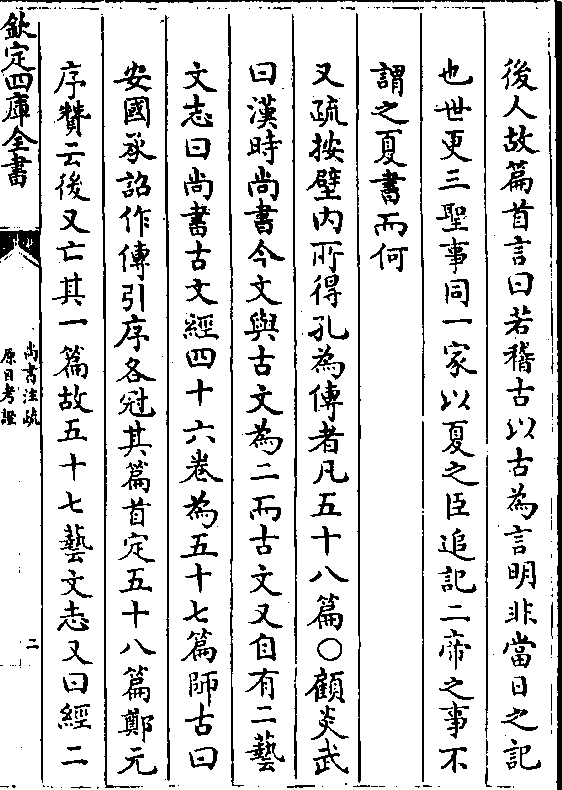 後人故篇首言曰若稽古以古為言明非當日之記
也世更三聖事同一家以夏之臣追記二帝之事不
謂之夏書而何
又疏按壁内所得孔為傳者凡五十八篇○顧炎武
曰漢時尚書今文與古文為二而古文又自有二藝
文志曰尚書古文經四十六卷為五十七篇師古曰
安國承詔作傳引序各冠其篇首定五十八篇鄭元
序贊云後又亡其一篇故五十七藝文志又曰經二
欽定四庫全書
尚書注疏
原目考證
二